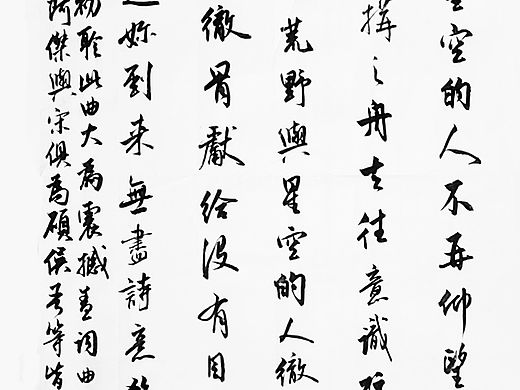 空的人不再仰望
搆之舟去往意識
荒野與星空的人徹
徹骨獻給沒有目
妳到来無盡詩意
初聆此曲大為震撼查词曲
阿傑與宋俱為碩侯等皆